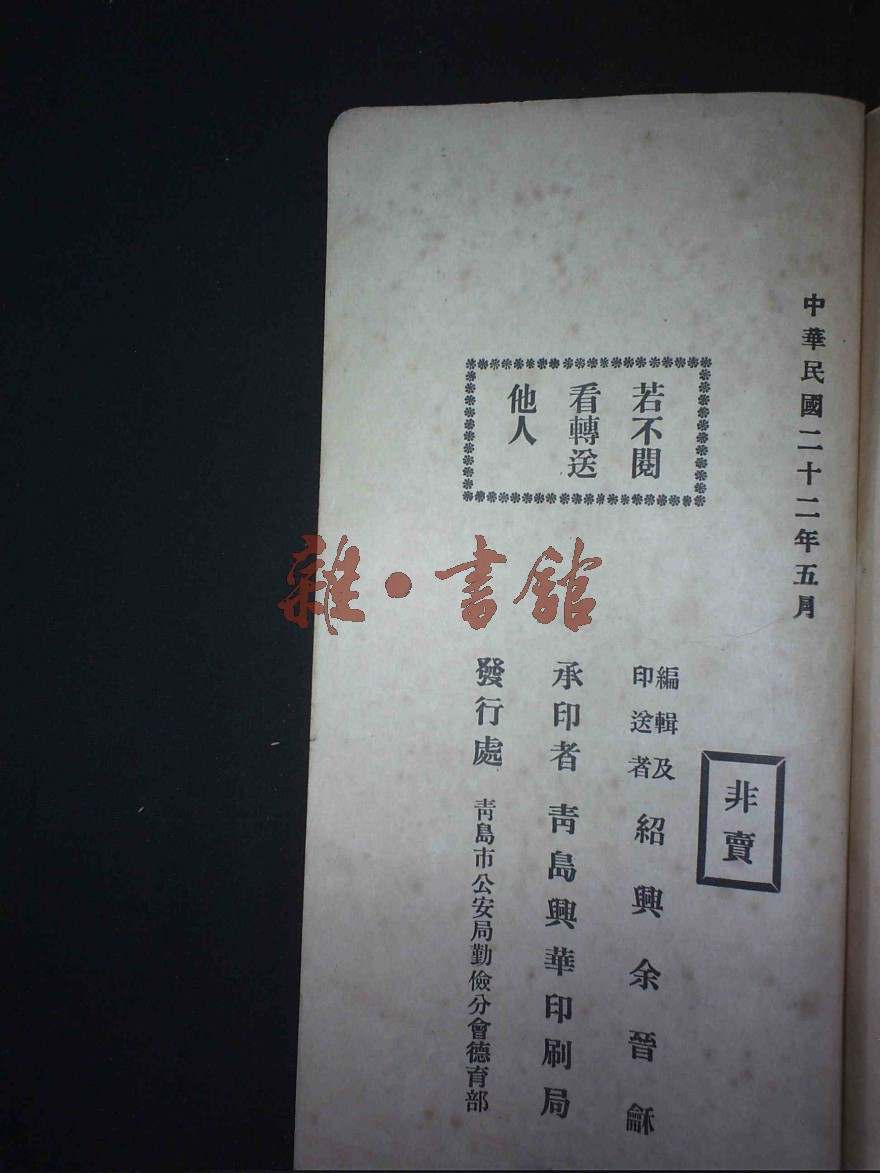 中華民國二十二年五月
非賣
編輯及
印送者
紹興余晉龢
承印者 靑島興華印刷局
發行處 靑島市公安局勤儉分會德育部
若不閱
看轉送
他人
雜·書館